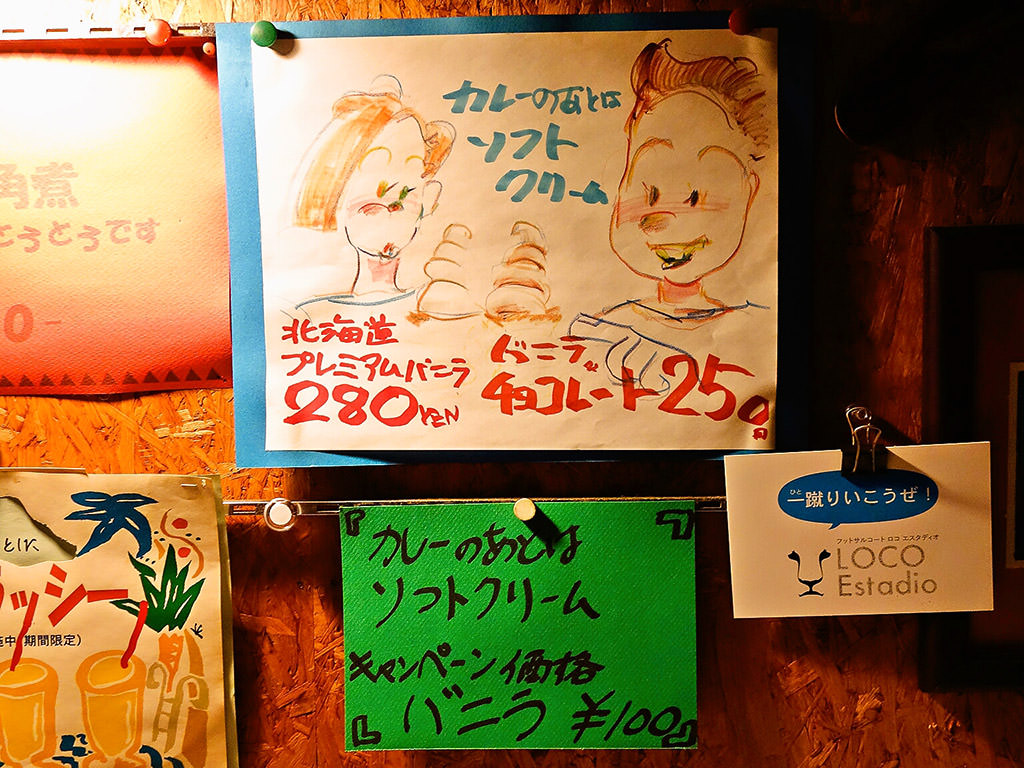 角煮
とぅとぅです
0-
カレーのあとは
ソフト
クリーム
北海道
プレミアムバニラ
280YEN
バニラ
チョコレート250円
カレーのあとは
ソフトクリーム
キャンペーン価格
バニラ ¥100
ひと
一蹴りいこうぜ!
フットサルコート ロコ エスタディオ
LOCO
Estadio
ラッシー
期間限定)